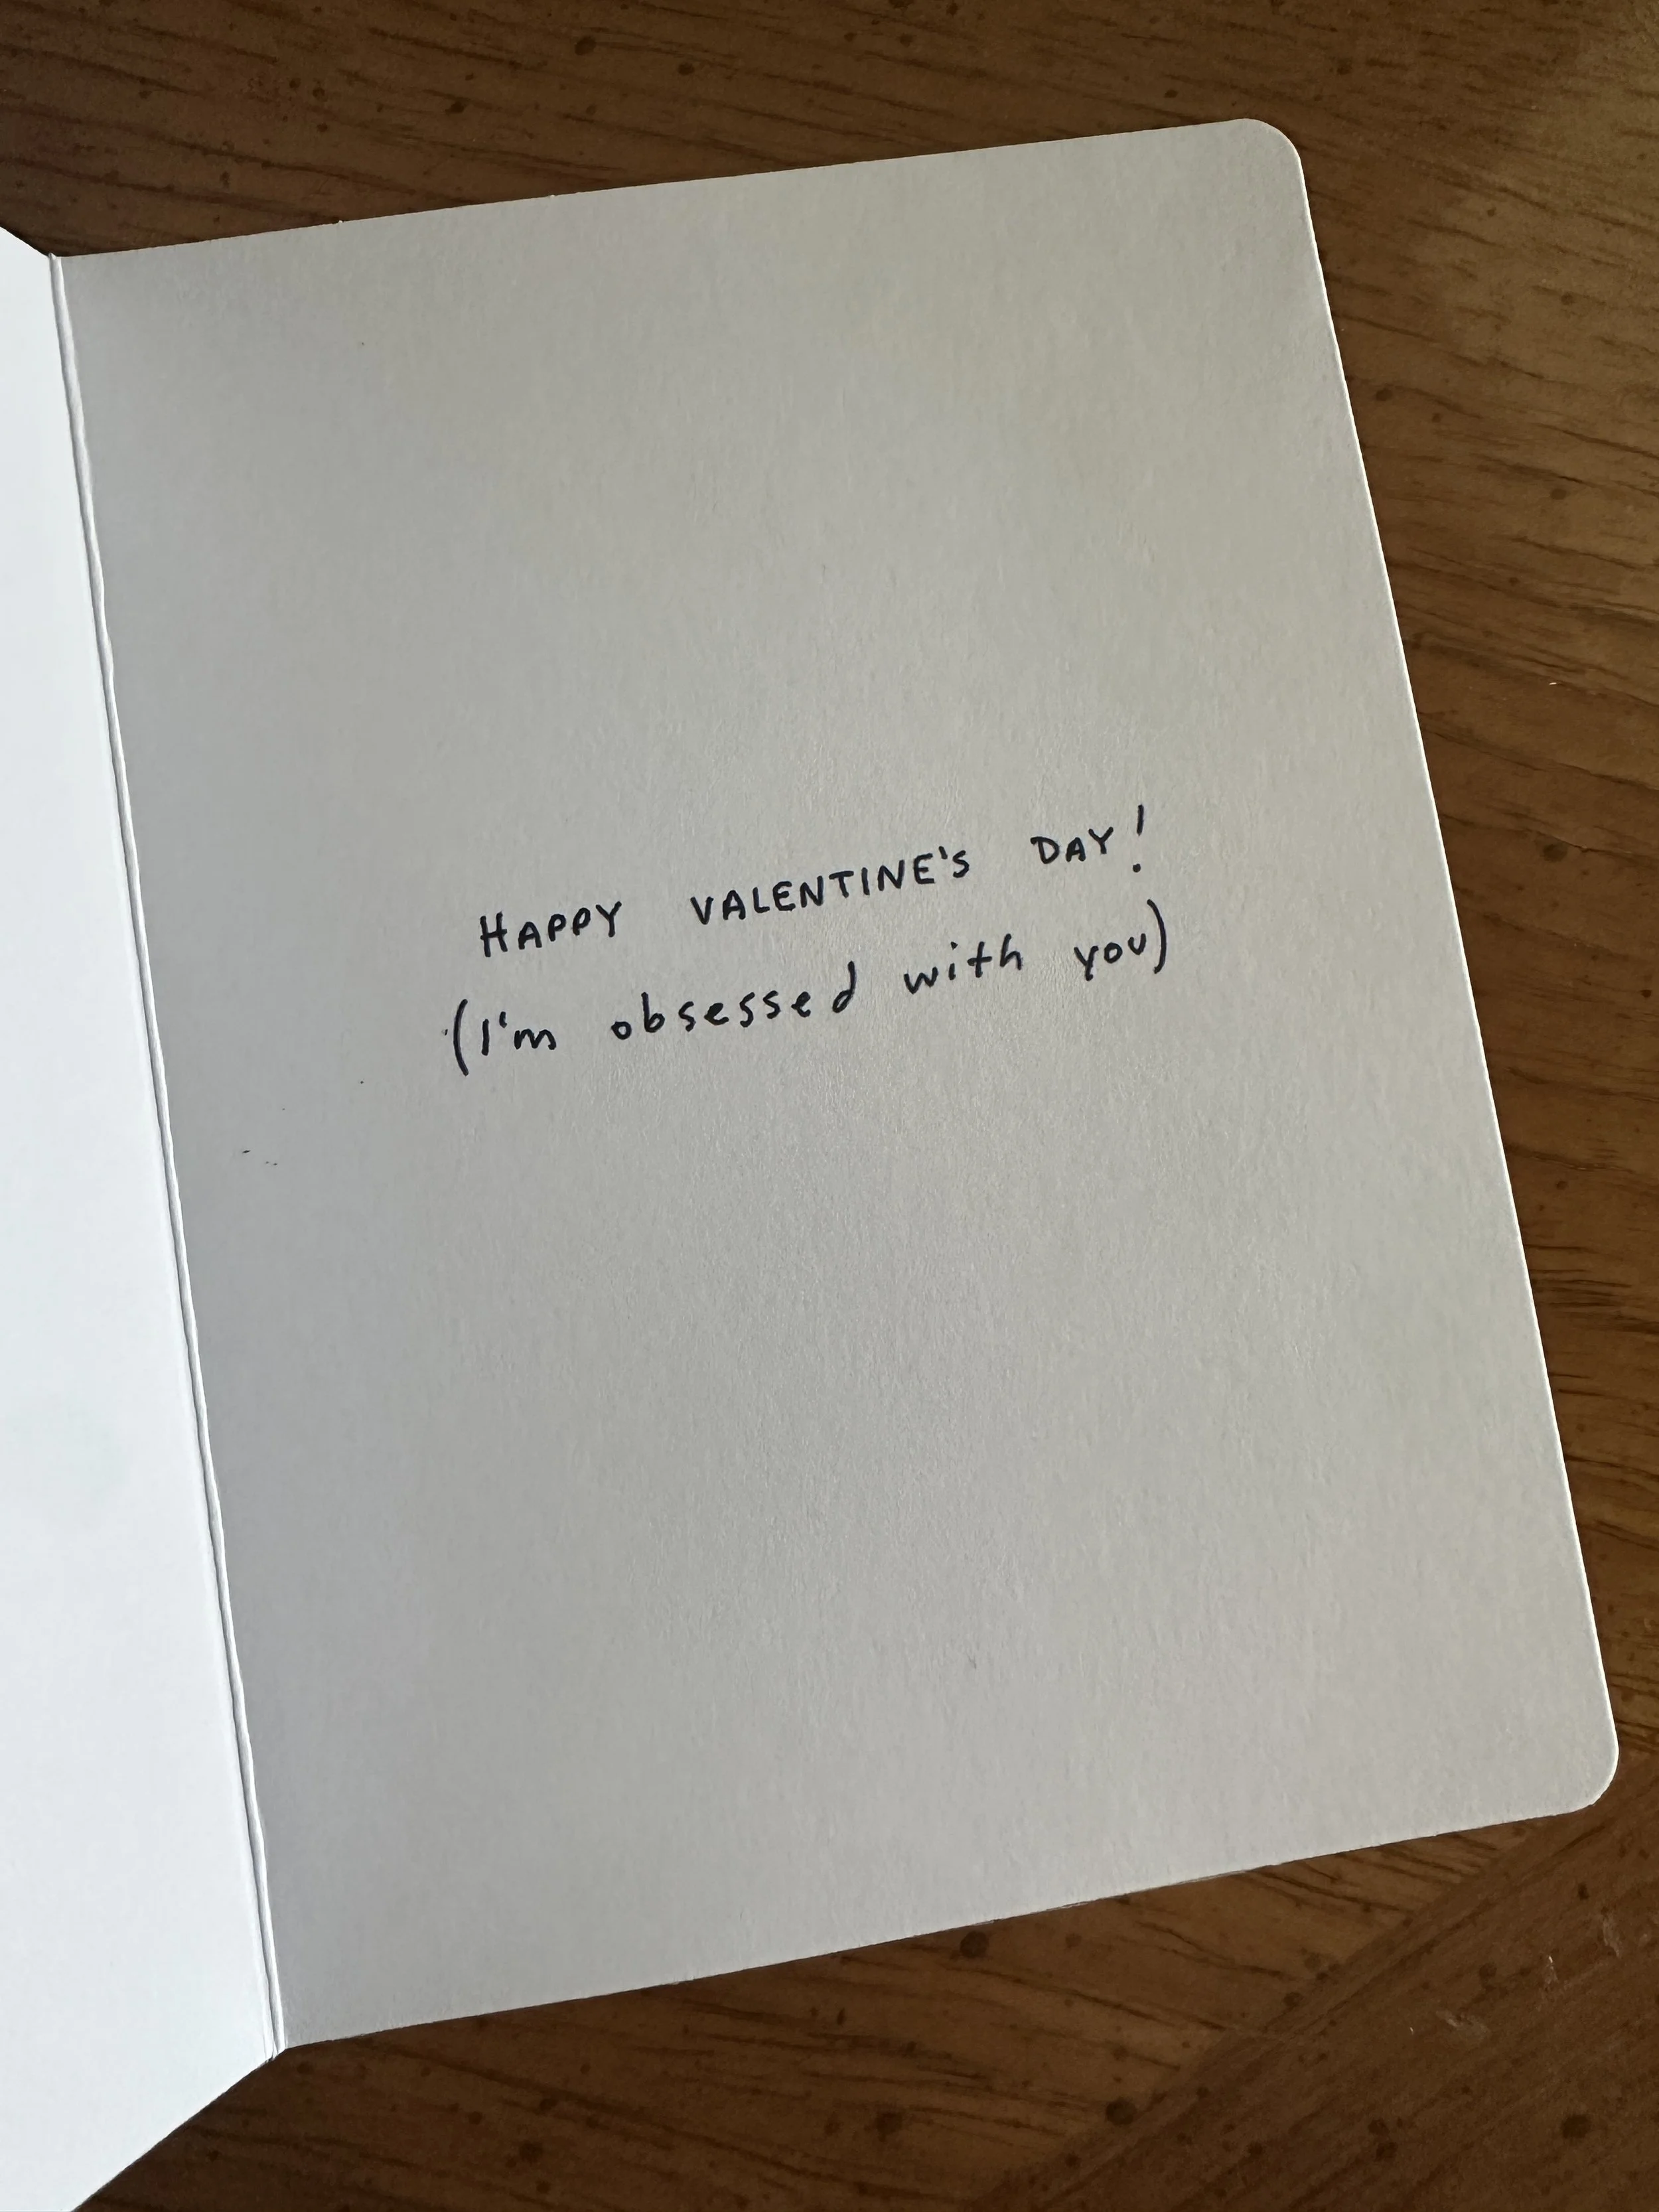 HAPPY VALENTINE'S DAY!
(I'm obsessed with you)